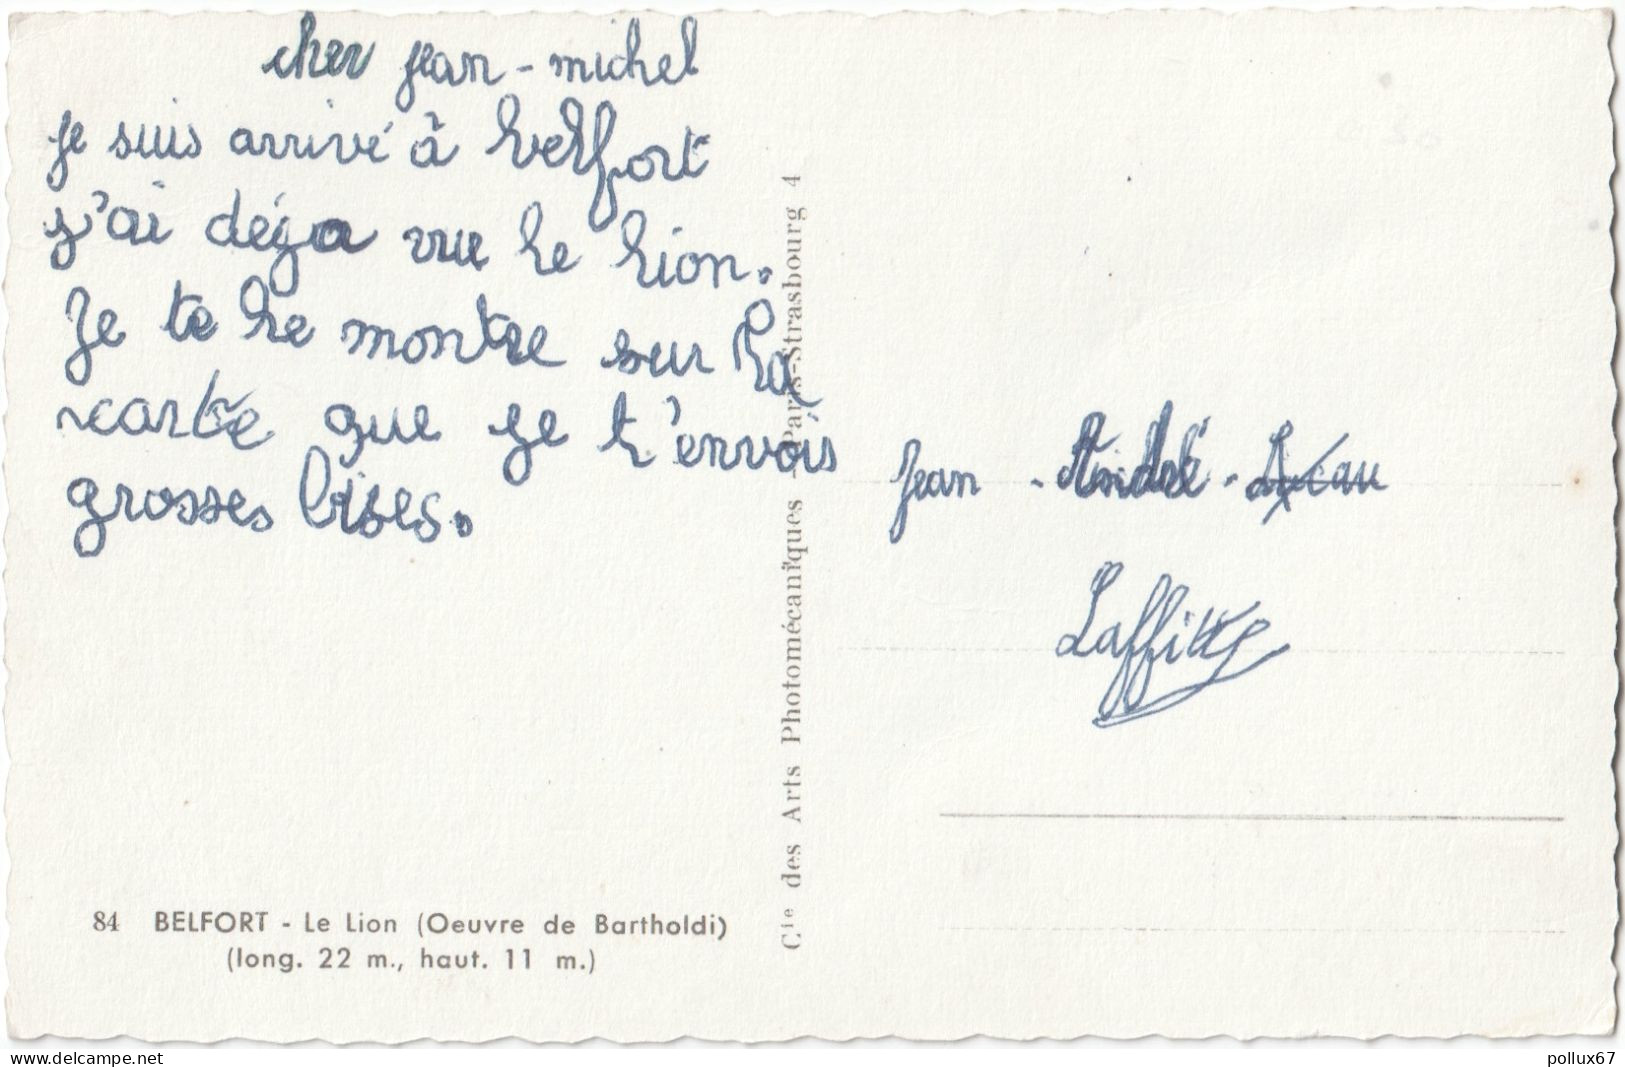 cher jean-michel
je suis arrivé à belfort
j'ai déja vue le lion.
Je te le montre sur la
carte que je t'envois
grosses bises.
Jean - André -
Laffitte
84 BELFORT - Le Lion (Oeuvre de Bartholdi)
(long. 22 m., haut. 11 m.)
Cie des Arts Photomécaniques - Paris-Strasbourg 4
pollux67
delcampe.net